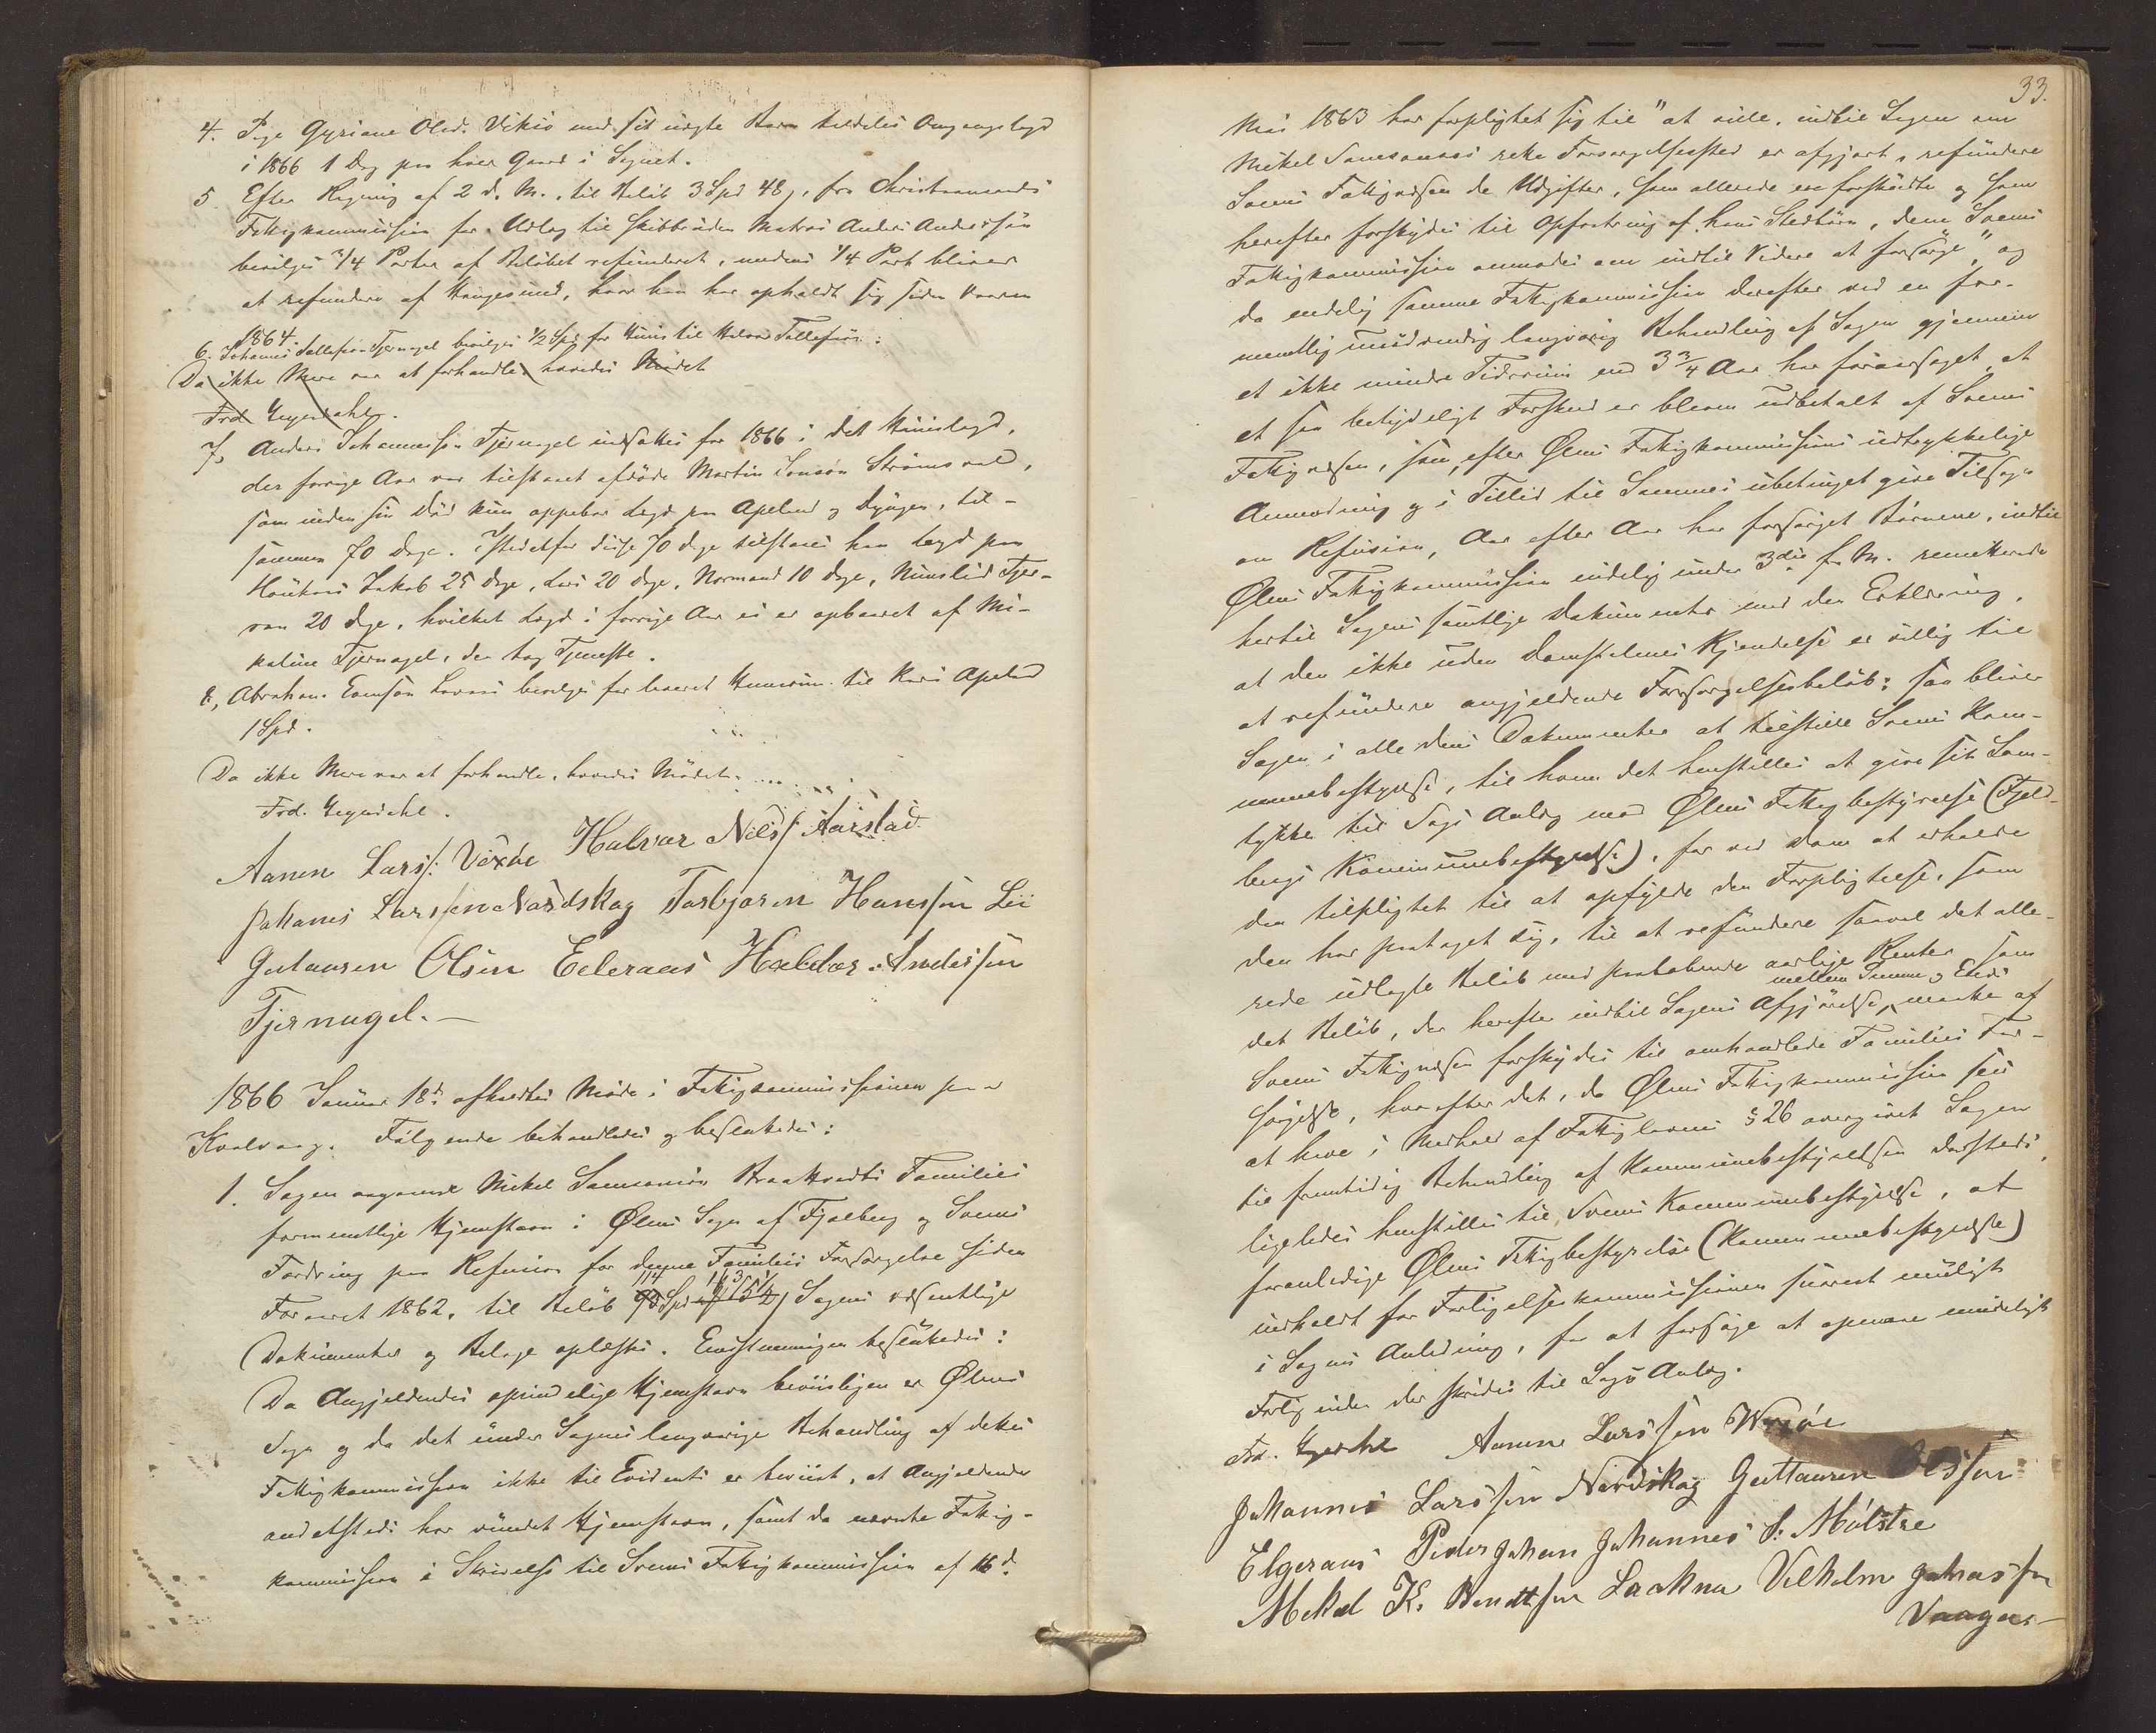 4. Pige Gyriane Olsd. Vikse med sit uægte Barn tildeles Omgangslægd
i 1866 1 Dag paa hver Gaard i Sognet.
5. Efter Regning af 2 d. M., til Beløb 3 Spd 48 s, fra Christiansands
Fattigkommission for Udlæg til skibbrudne Matros Anders Anderssön
bevilges 3/4 Parter af Beløbet refunderet, medens 1/4 Part bliver
at refundere af Haugesund, hvor han har opholdt sig siden Vaaren
1864.
6. Johannes Tollefsen Tjernagel bevilges 1/2 Spd for Huus til Tollefsen:
Da ikke Mere var at forhandle, hævedes Mödet
Frd.
7, Anders Johannessen Tjernagel indsættes for 1866 i det Huuslægd,
der forrige Aar var tilstaaet afdöde Martin Jonsön Strömsvold,
som inden sin Död kun oppebar Lægd paa Apeland og Dyngen, til-
sammen 70 Dage. Istedetfor disse 70 Dage tilstaaes han Lægd paa
Haukaas Jakob 25 Dage, Lars 20 Dage, Normand 10 Dage, Nimslid Tjer-
van 20 Dage, hvilket Lægd i forrige Aar ei er opbaaret af Mi-
kaline Tjernagel, der tog Tjeneste.
8, Abraham bevilges for leveret til Kari Apeland
1 Spd.
Da ikke Mere var at forhandle, hævedes Mödet.
Frd.
Aanen Larss: Vexöe Halvar Nilss Aarstad
Johanes Larssen Nardskog Torbjørn Hanssen Lie
Guttaarm Olsen Eeleraas Haldor Andersen
Tjernagel.
1866 Januar 18de afholdtes Möde i Fattigkommissionen paa
Kvalvaag. Fölgende behandledes og besluttedes:
1. Sagen angaaende Mikel Samsonsön Braatvedts Families
formentlige Hjemstavn i Ølens Sogn af Fjælberg og Sveens
Fordring paa Refusion for denne Families Forsørgelse siden
Foraaret 1862, til Beløb 114 Spd Sagens væsentlige
Dokumenter og Bilage oplæstes. Eenstemmigen besluttedes:
Da Angjeldendes oprindelige Hjemstavn beviisligen er Ølens
Sogn og da det under Sagens langvarige Behandling af dettes
Fattigkommission ikke til Evidents er beviist, at Angjeldende
andetsteds har vundet Hjemstavn, samt da nævnte Fattig-
kommission i Skrivelse til Sveens Fattigkommission af 16d
33.
Mai 1863 har forpligtet sig til "at ville, indtil Sagen om
Mikel Samsonsens rette Forsørgelsessted er afgjort, refundere
Sveens Fattigvæsen de Udgifter, som allerede ere forskudte og som
herefter forskydes til Opfostring af hans Stedbörn, dem Sveens
Fattigkommission anmodes om indtil Videre at forsörge", og
da endelig samme Fattigkommission derefter ved en for-
mentlig unödvendig langvarig Behandling af Sagen gjennem
et ikke mindre Tidsrum end 3 3/4 Aar har foraarsaget at
et saa betydeligt Forskud er bleven udbetalt af Sveens
Fattigvæsen, som, efter Ølens Fattigkommissions udtrykkelige
Anmodning og i Tillid til Sammes ubetinget givne Tilsagn
om Refusion, Aar efter Aar har forsörget Börnene, indtil
Ølens Fattigkommission endelig under 3die f. M. remitterede
hertil Sagens samtlige Dokumenter med den Erklæring,
at den ikke uden Domstolenes Kjendelse er villig til
at refundere angjeldende Forsörgelsesbelöb: saa bliver
Sagen i alle dens Dokumenter at tilstille Sveens Kom-
munebestyrelse, til hvem det henstilles at give sit Sam-
tykke til Sags Anlæg mod Ølens Fattigbestyrelse (Fjeld-
bergs Kommunebestyrelse), for ved Dom at erholde
den tilpligtet til at opfylde den Forpligtelse, som
den har paataget sig, til at refundere saavel det alle-
rede udlagte Belöb med paaløbende aarlige Renter som
det Belöb, der herefter indtil Sagens Afgjörelse mellem Sveen og Ølen maatte af
Sveens Fattigvæsen forskydes til omhandlede Families For-
sörgelse, hvorefter det, da Ølens Fattigkommission sees
at have i Medhold af Fattiglovens § 26 overgivet Sagen
til fremtidig Behandling af Kommunebestyrelsen dersteds,
ligeledes henstilles til Sveens Kommunebestyrelse, at
foranledige Ølens Fattigbestyrelse (Kommunebestyrelse)
indkaldt for Forligelseskommissionen snarest muligt
i Sagens Anledning, for at forsöge at opnaae mindeligt
Forlig inden der skrides til Sags Anlæg.
Frd. Aanen Larssen Wexöe
Johannes Larssen Nardskog Guttaarm Olssen
Elgeraas Peder Johan Johannes S: Mölstre
Mikal K. Bendtsen Laakna Vilhelm Johnssen
Vaagen